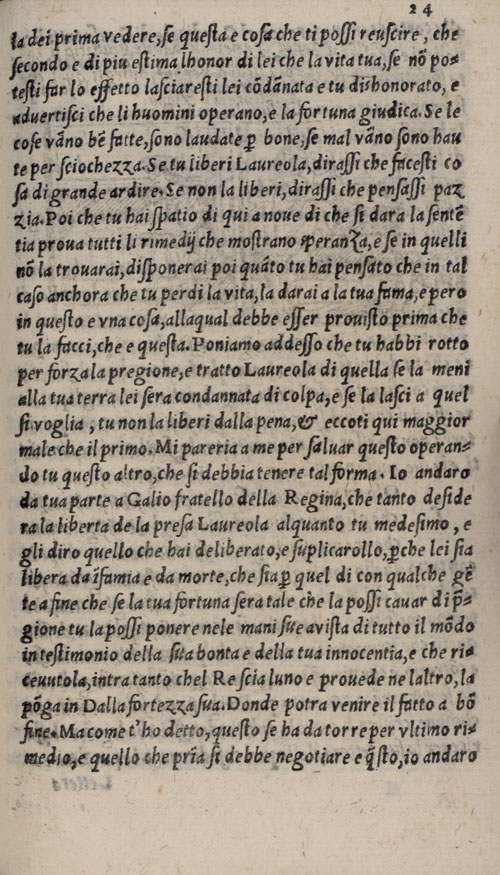 24
la dei prima vedere, se questa e cosa che ti possi reuscire, che
secondo e di piu estima lhonor di lei che la vita tua, se nõ po-
testi far lo effetto lasciaresti lei cõdãnata e tu dishonorato, e
advertisci che li huomini operano, e la fortuna giudica. Se le
cose vãno bẽ fatte, sono laudate ꝑ bone, se mal vãno sono hau
te per sciochezza. Se tu liberi Laureola, dirassi che facesti co
sa di grande ardire. Se non la liberi, dirassi che pensassi paz
zia. Poi che tu hai spatio di qui a noue di che si dara la sentẽ
tia proua tutti li rimedij che mostrano speranza, e se in quelli
nõ la trouarai, disponerai poi quãto tu hai pensato che in tal
caso anchora che tu perdi la vita, la darai a la tua fama, e pero
in questo e vna cosa, allaqual debbe esser prouisto prima che
tu la facci, che e questa. Poniamo addesso che tu habbi rotto
per forza la pregione, e tratto Laureola di quella se la meni
alla tua terra lei sera condannata di colpa, e se la lasci a quel
si voglia, tu non la liberi dalla pena, & eccoti qui maggior
male che il primo. Mi pareria a me per saluar questo operan-
do tu questo altro, che si debbia tenere tal forma. Io andaro
da tua parte a Galio fratello della Regina, che tanto deside
ra la liberta de la presa Laureola alquanto tu medesimo, e
gli diro quello che hai deliberato, e suplicarollo, ꝑche lei sia
libera da ĩfamia e da morte, che sia ꝑ quel di con qualche gẽ
te a fine che se la tua fortuna sera tale che la possi cauar di p̃-
gione tu la possi ponere nele mani sue a vista di tutto il mõdo
in testimonio della sua bonta e della tua innocentia, e che ri=
ceuutola, intra tanto chel Re scia luno e prouede ne laltro, la
põga in Dalla fortezza sua. Donde potra venire il fatto a bõ
fine. Ma come t'ho detto, questo se ha da torre per vltimo ri-
medio, e quello che pria si debbe negotiare e q̃sto, io andaro